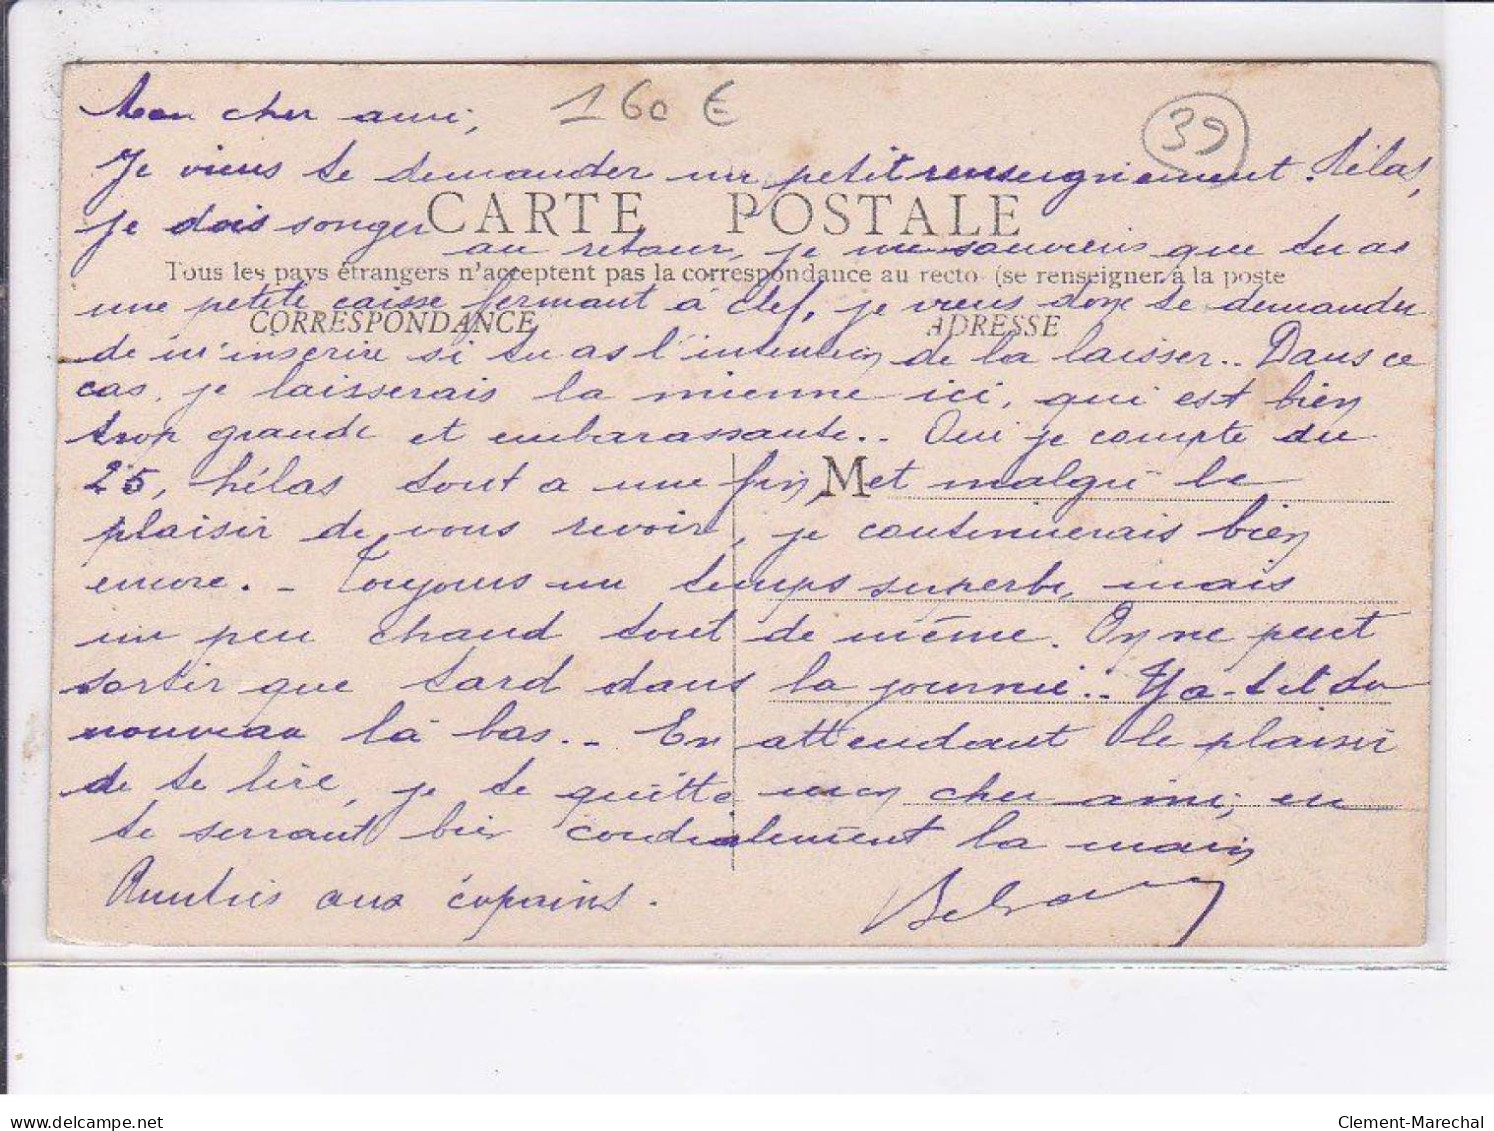 Mon cher ami, 160 €
39
Je viens te demander un petit renseignement. Hélas,
CARTE POSTALE
je dois songer au retour, je me souviens que tu as
Tous les pays étrangers n'acceptent pas la correspondance au recto (se renseigner à la poste
une petite caisse fermant à clef, je viens donc te demander
CORRESPONDANCE ADRESSE
de m'inscrire si tu as l'intention de la laisser.. Dans ce
cas, je laisserais la mienne ici, qui est bien
trop grande et embarassante.. Oui je compte du
25, hélas tout a une fin, et malgré le
M
plaisir de vous revoir, je continuerais bien
encore. - Toujours un temps superbe, mais
un peu chaud tout de même. On ne peut
sortir que tard dans la journée.. Y a-t-il du
nouveau là bas. - En attendant le plaisir
de te lire, je te quitte mon cher ami, en
te serrant bien cordialement la main
Amitiés aux copains.
delcampe.net
Clement-Marechal